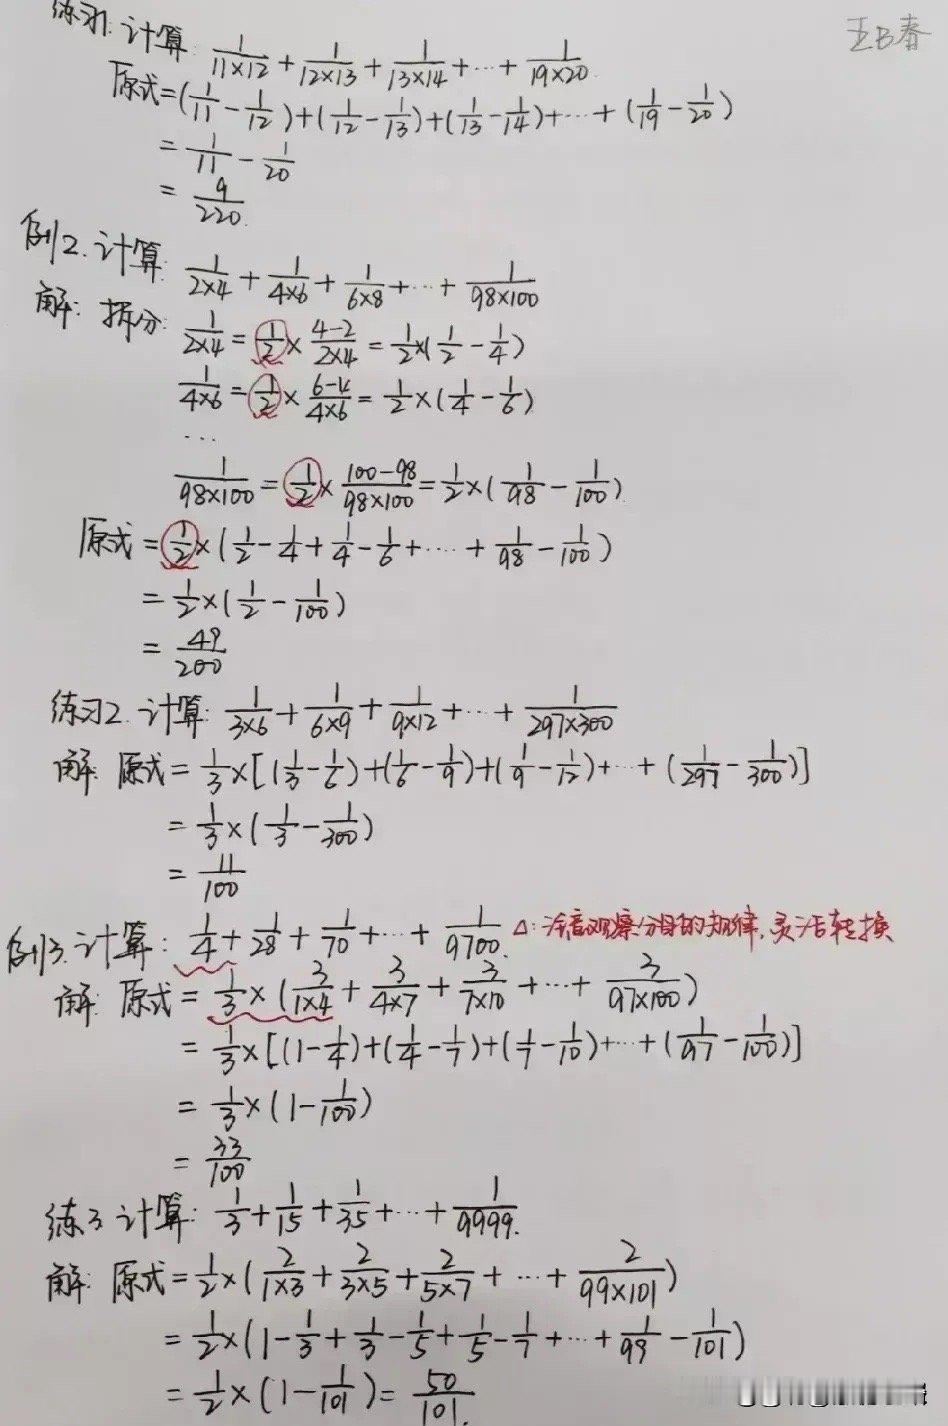 王B春
练习1. 计算: 1/(11×12) + 1/(12×13) + 1/(13×14) + … + 1/(19×20)
原式 = (1/11 - 1/12) + (1/12 - 1/13) + (1/13 - 1/14) + … + (1/19 - 1/20)
= 1/11 - 1/20
= 9/220.
例2. 计算: 1/(2×4) + 1/(4×6) + 1/(6×8) + … + 1/(98×100)
解: 拆分: 1/(2×4) = 1/2 × (4-2)/(2×4) = 1/2 × (1/2 - 1/4)
1/(4×6) = 1/2 × (6-4)/(4×6) = 1/2 × (1/4 - 1/6)
…
1/(98×100) = 1/2 × (100-98)/(98×100) = 1/2 × (1/98 - 1/100)
原式 = 1/2 × (1/2 - 1/4 + 1/4 - 1/6 + … + 1/98 - 1/100)
= 1/2 × (1/2 - 1/100)
= 49/200
练习2. 计算: 1/(3×6) + 1/(6×9) + 1/(9×12) + … + 1/(297×300)
解: 原式 = 1/3 × [(1/3 - 1/6) + (1/6 - 1/9) + (1/9 - 1/12) + … + (1/297 - 1/300)]
= 1/3 × (1/3 - 1/300)
= 11/100
例3. 计算: 1/4 + 1/28 + 1/70 + … + 1/9700. △: 注意观察分母的规律, 灵活转换
解: 原式 = 1/3 × (3/(1×4) + 3/(4×7) + 3/(7×10) + … + 3/(97×100))
= 1/3 × [(1 - 1/4) + (1/4 - 1/7) + (1/7 - 1/10) + … + (1/97 - 1/100)]
= 1/3 × (1 - 1/100)
= 33/100
练3 计算: 1/3 + 1/15 + 1/35 + … + 1/9999.
解: 原式 = 1/2 × (2/(1×3) + 2/(3×5) + 2/(5×7) + … + 2/(99×101))
= 1/2 × (1 - 1/3 + 1/3 - 1/5 + 1/5 - 1/7 + … + 1/99 - 1/101)
= 1/2 × (1 - 1/101) = 50/101.